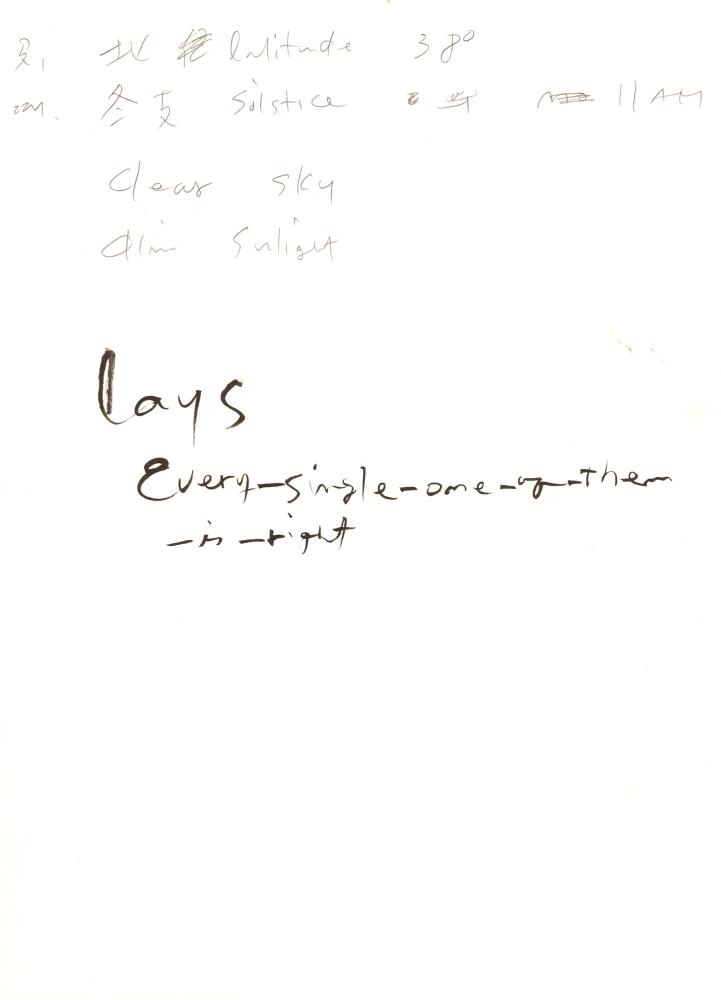 北 latitude 38°
冬支 Solstice 11 AM
Clear sky
dim Sunlight
lays
Every-single-one-of-them
-is-right